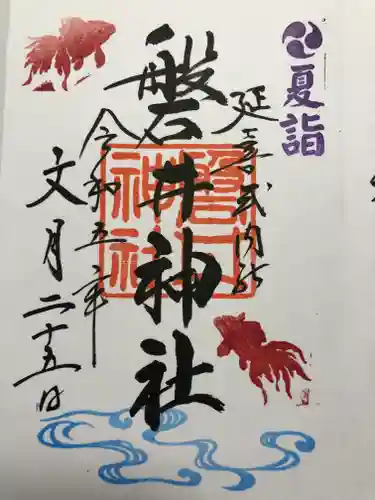 夏詣
延喜式内社
磐井神社
磐井神社
令和五年
文月二十五日